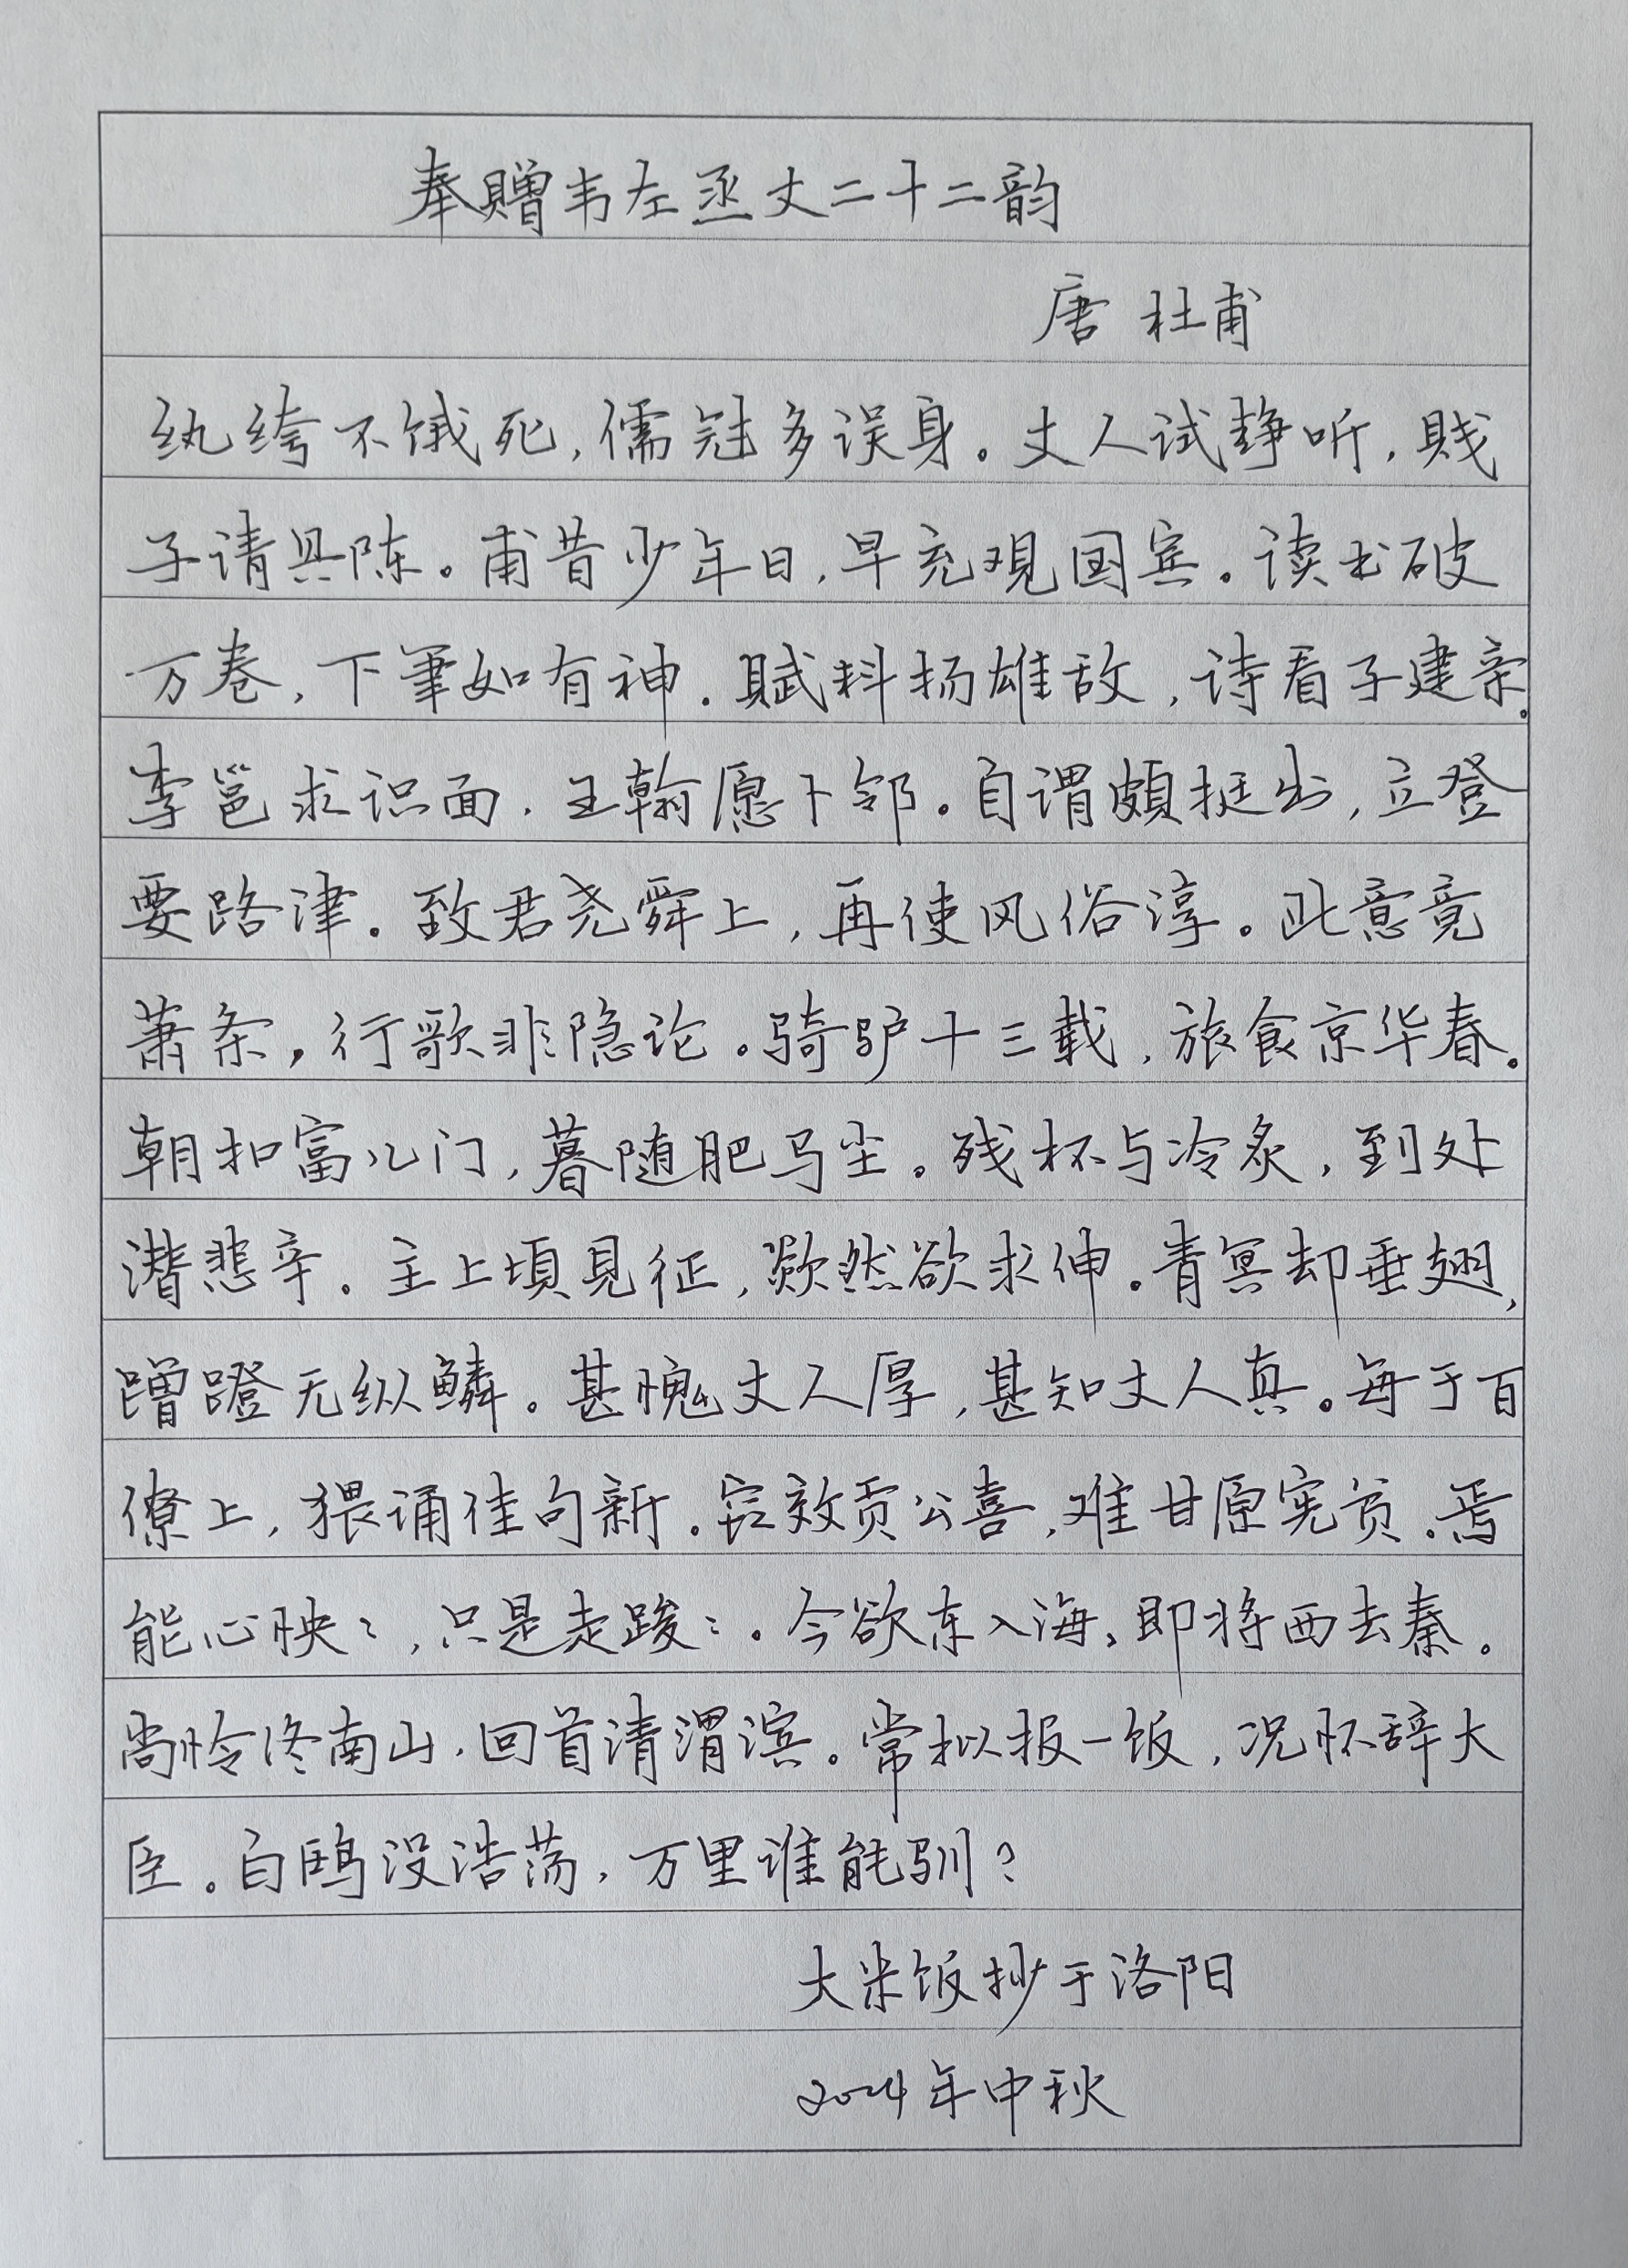 奉贈韦左丞丈二十二韵
唐 杜甫
纨绔不饿死，儒冠多误身。丈人试静听，賎
子请具陈。甫昔少年日，早充观国宾。读书破
万卷，下筆如有神。賦料扬雄敌，诗看子建亲。
李邕求识面，王翰愿卜邻。自谓頗挺出，立登
要路津。致君尧舜上，再使风俗淳。此意竟
萧条，行歌非隐论。骑驴十三载，旅食京华春。
朝扣富儿门，暮随肥马尘。残杯与冷炙，到处
潜悲辛。主上頃見征，欻然欲求伸。青冥却垂翅，
蹭蹬无纵鳞。甚愧丈人厚，甚知丈人真。每于百
僚上，猥诵佳句新。窃效贡公喜，难甘原宪贫。焉
能心怏：，只是走踆：。今欲东入海，即将西去秦。
尚怜终南山，回首清渭滨。常拟报一饭，况怀辞大
臣。白鸥没浩荡，万里谁能驯？
大米饭抄于洛阳
2024年中秋